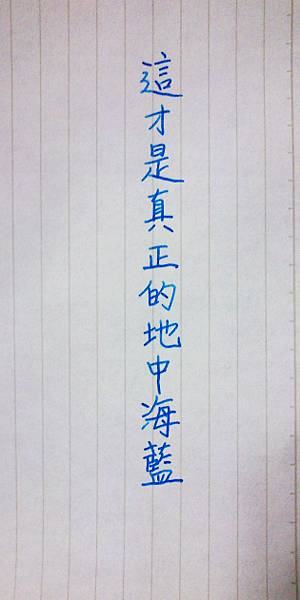 這才是真正的地中海藍